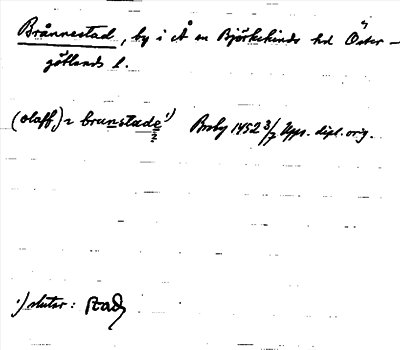 Brånnestad, by i Å sn Björkekinds hd Öster-
götlands l.
(olaff) i brunstade 1) Broby 1452 3/7 Upps. dipl. orig.
1) slutar: stad